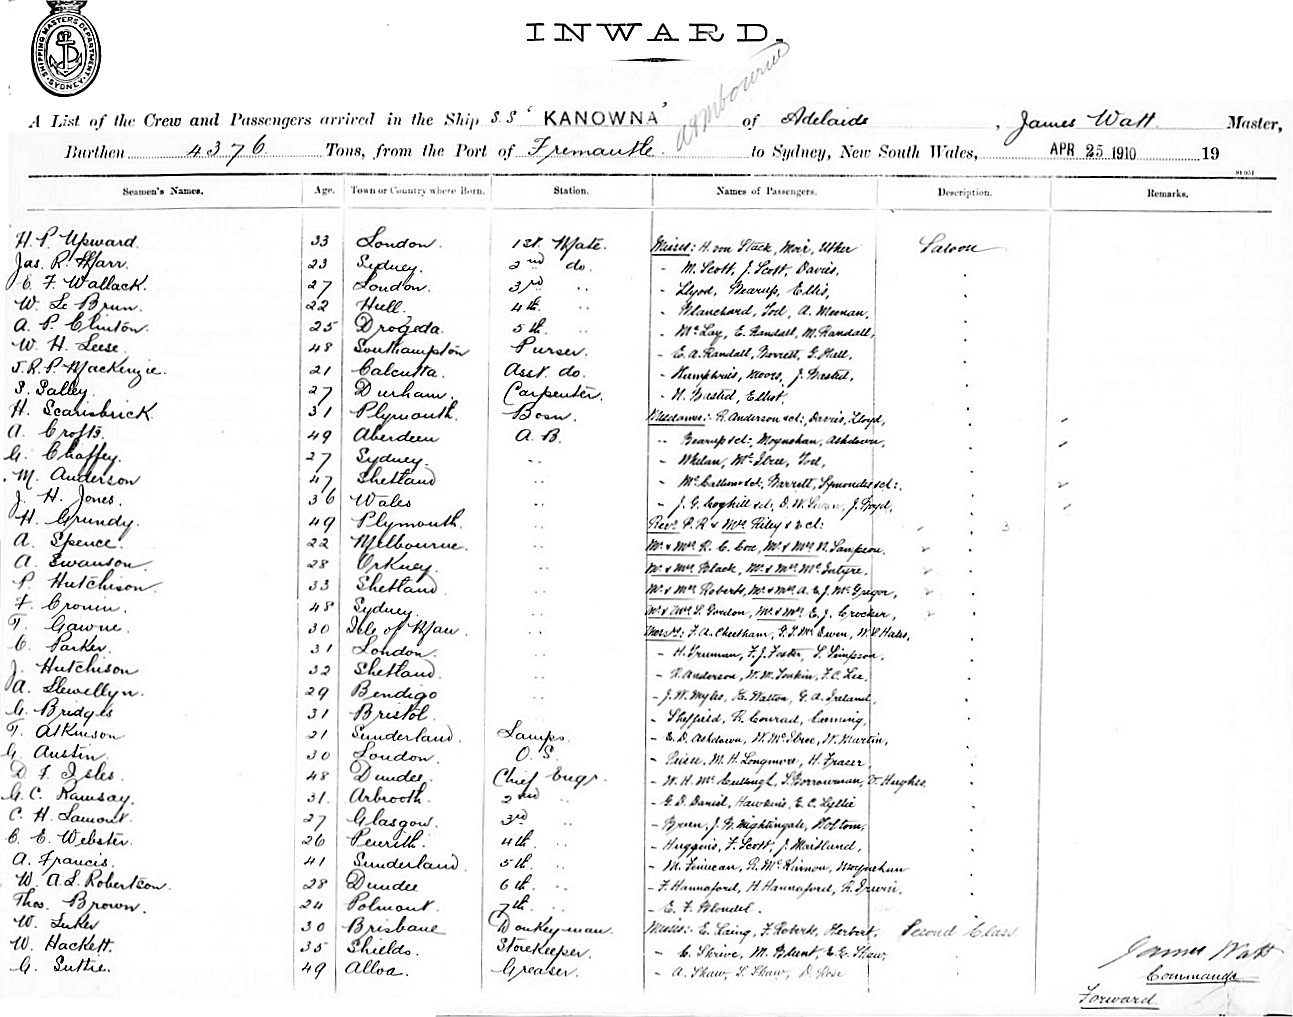 SHIPPING MASTERS DEPARTMENT SYDNEY
INWARD.
A List of the Crew and Passengers arrived in the Ship S.S 'KANOWNA' of Adelaide, James Watt Master,
Burthen 4376 Tons, from the Port of Fremantle to Sydney, New South Wales, APR 25 1910 19
Seamen's Names. Age. Town or Country where Born. Station. Names of Passengers. Description. Remarks.
H. P. Upward. 33 London. 1st. Mate. Misses: H. von Stack, Moir, Usher Saloon
Jas. R. Marr. 23 Sydney. 2nd do. - M. Scott, J. Scott, Davies,
E. F. Wallack. 27 London. 3rd " - Llyod, Bearup, Ellis,
W. Le Brun. 22 Hull. 4th " - Blanchard, Tod, A. Meenan,
A. P. Clinton. 25 Drogeda. 5th " - McLay, E. Randall, M. Randall,
W. H. Leese. 48 Southampton Purser. - E. A. Randall, G. Hall,
J. R. P. MacKenzie. 21 Calcutta. Asst. do. - Humphries, Moors, J.
27 Durham. Carpenter. - Elliot.
H. Scarisbrick 31 Plymouth. Bosn. Mesdames:- R. Anderson & ch:, Davies, Lloyd,
A. Crofts. 49 Aberdeen A. B. " Bearup & ch:, Moynahan, Ashdown,
G. Chaffey. 27 Sydney. " - Whelan, Tod,
M. Anderson 47 Shetland " - McCallum & ch:, Barrett, Symonds & ch:.
J. H. Jones. 36 Wales " - J. G. Coghill & ch:, D. W. J. Boyd,
H. Grundy. 49 Plymouth. " Revd. P. R. & Mrs. Riley & 2 ch: 3
A. Spence. 22 Melbourne. " Mr. & Mrs. R. C. Coe, Mr. & Mrs. N. Sampson.
A. Swanson. 28 Orkney. " Mr. & Mrs. Black, Mr. & Mrs. McIntyre,
P. Hutchison. 33 Shetland " Mr. & Mrs. Roberts, Mr. & Mrs. A. E. J. McGregor,
F. Cronin. 48 Sydney. " Mr. & Mrs. S. Gordon, Mr. & Mrs. E. J. Crocker,
T. Gawne. 30 Isle of Man " Messrs: F. A. Cheetham, G. T. McEwen, W. S. Hales,
C. Parker. 31 London. " - H. Truman, F. J. Foster, S. Simpson,
J. Hutchison 32 Shetland. " - R. Anderson, W. M. Tonkin, F. C. Lee,
A. Llewellyn. 29 Bendigo " - J. W. Myles, G. Walton, G. A. Ireland,
G. Bridges 31 Bristol. " - Sheffield, R. Conrad, Cumming,
T. Atkinson 21 Sunderland. Lamps. - E. D. Ashdown, W. Martin,
G. Austin 30 London. O. S. - M. H. Longmore, H. Fraser,
D. F. Isles. 48 Dundee. Chief Engr. - W. H. McCullingh, S. Borrowman, T. Hughes,
G. C. Ramsay. 31. Arbroath. 2nd " - G. D. Daniel, Hawkins, E. C. Lyllie
C. H. Lamont. 27 Glasgow. 3rd " - J. W. Nightingale, Holtom,
C. E. Webster. 26 Penrith. 4th. " - Huggins, F. Scott, J. Maitland,
A. Francis. 41 Sunderland. 5th. " - M. Finucan, R. McKinnon, Moynahan
W. A. S. Robertson. 28 Dundee 6th. " - F. Hannaford, H. Hannaford, R. Irwin,
Thos. Brown. 24 Polmont. 7th. " - E. F. Blondel.
W. Luker 30 Brisbane Donkeyman. Misses:- E. Laing, F. Roberts, Herbert, Second Class
W. Hackett. 35 Shields. Storekeeper. - C. Shrive, M. Blunt, E. G. Shaw,
G. Suttie. 49 Alloa. Greaser. - A. Shaw, S. Shaw, D. Rose
James Watt
Commander
Forward